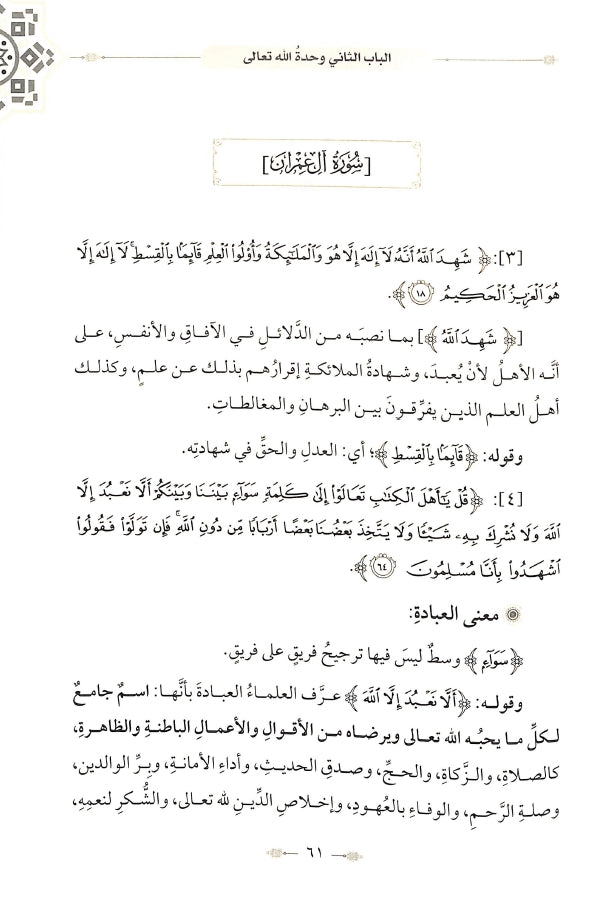 الباب الثاني وحدةُ الله تعالى
[سُورَةُ آلِ عِمْرَانَ]
[٣]: ﴿شَهِدَ ٱللَّهُ أَنَّهُۥ لَآ إِلَٰهَ إِلَّا هُوَ وَٱلْمَلَٰٓئِكَةُ وَأُو۟لُوا۟ ٱلْعِلْمِ قَآئِمًۢا بِٱلْقِسْطِ ۚ لَآ إِلَٰهَ إِلَّا
هُوَ ٱلْعَزِيزُ ٱلْحَكِيمُ ١٨﴾.
[﴿شَهِدَ ٱللَّهُ﴾] بما نصبَه من الدَّلائلِ في الآفاقِ والأنفسِ، على
أنَّه الأهلُ لأنْ يُعبدَ، وشهادةُ الملائكةِ إقرارُهم بذلك عن علمٍ، وكذلك
أهلُ العلم الذين يفرِّقونَ بين البرهانِ والمغالطاتِ.
وقوله: ﴿قَآئِمًۢا بِٱلْقِسْطِ﴾؛ أي: العدلِ والحقِّ في شهادتِه.
[٤]: ﴿قُلْ يَٰٓأَهْلَ ٱلْكِتَٰبِ تَعَالَوْا۟ إِلَىٰ كَلِمَةٍ سَوَآءٍۭ بَيْنَنَا وَبَيْنَكُمْ أَلَّا نَعْبُدَ إِلَّا
ٱللَّهَ وَلَا نُشْرِكَ بِهِۦ شَيْـًٔا وَلَا يَتَّخِذَ بَعْضُنَا بَعْضًا أَرْبَابًا مِّن دُونِ ٱللَّهِ ۚ فَإِن تَوَلَّوْا۟ فَقُولُوا۟
ٱشْهَدُوا۟ بِأَنَّا مُسْلِمُونَ ٦٤﴾.
معنى العبادةِ:
﴿سَوَآءٍ﴾ وسطٌ ليسَ فيها ترجيحُ فريقٍ على فريقٍ.
وقوله: ﴿أَلَّا نَعْبُدَ إِلَّا ٱللَّهَ﴾ عرَّف العلماءُ العبادةَ بأنَّها: اسمٌ جامعٌ
لكلِّ ما يحبُّه الله تعالى ويرضاه من الأقوالِ والأعمالِ الباطنةِ والظاهرةِ،
كالصلاةِ، والزَّكاةِ، والحجِّ، وصدقِ الحديثِ، وأداءِ الأمانةِ، وبِرِّ الوالدين،
وصلةِ الرَّحمِ، والوفاءِ بالعُهودِ، وإخلاصِ الدِّينِ لله تعالى، والشُّكرِ لنعمِهِ،
٦١